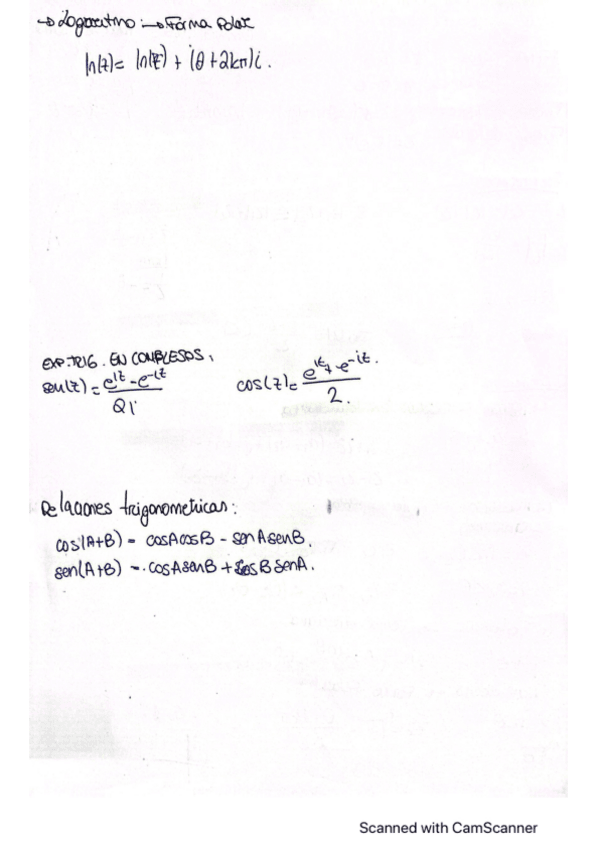 → Logaritmo: → Forma Polar
ln(z) = ln(r) + (θ + 2kπ)i.
EXP. TRIG. EN COMPLESOS,
sen(z) = (e^{iz} - e^{-iz}) / 2i
cos(z) = (e^{iz} + e^{-iz}) / 2.
Relaciones trigonometricas:
cos(A+B) = cosAcosB - senAsenB.
sen(A+B) = cosAsenB + cosBsenA.
Scanned with CamScanner